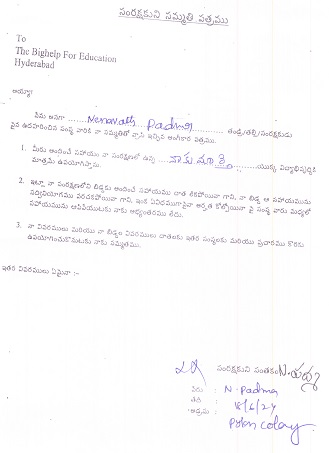 సంరక్షకుని సమ్మతి పత్రము
To
The Bighelp For Education
Hyderabad
అయ్యా!
నేను అనగా Nenavath Padma తండ్రి/తల్లి/సంరక్షకుడు
పైన ఉదహరించిన సంస్థ వారికి నా సమ్మతితో వ్రాసి ఇచ్చిన అంగీకార పత్రము.
1. మీరు అందించే సహాయము నా సంరక్షణలో ఉన్న యొక్క విద్యాభివృద్ధికి
మాత్రమే ఉపయోగిస్తాము.
2. ఇట్లా నా సంరక్షణలోని బిడ్డకు అందించే సహాయము దాత లేకపోయినా గాని, నా బిడ్డ ఆ సహాయమును
సద్వినియోగము పరచకపోయినా గాని, ఇంక ఏవిధముగానైనా అర్హత కోల్పోయినా పై సంస్థ వారు మధ్యలో
సహాయమును ఆపివేయుటకు నాకు అభ్యంతరము లేదు.
3. నా వివరములు మరియు నా బిడ్డల వివరములు దాతలకు ఇతర సంస్థలకు మరియు ప్రచారము కొరకు
ఉపయోగించుకొనుటకు నాకు సమ్మతము.
ఇతర వివరములు ఏమైనా :-
సంరక్షకుని సంతకం N. పద్మ
పేరు : N. Padma
తేది : 18/6/24
అడ్రసు :